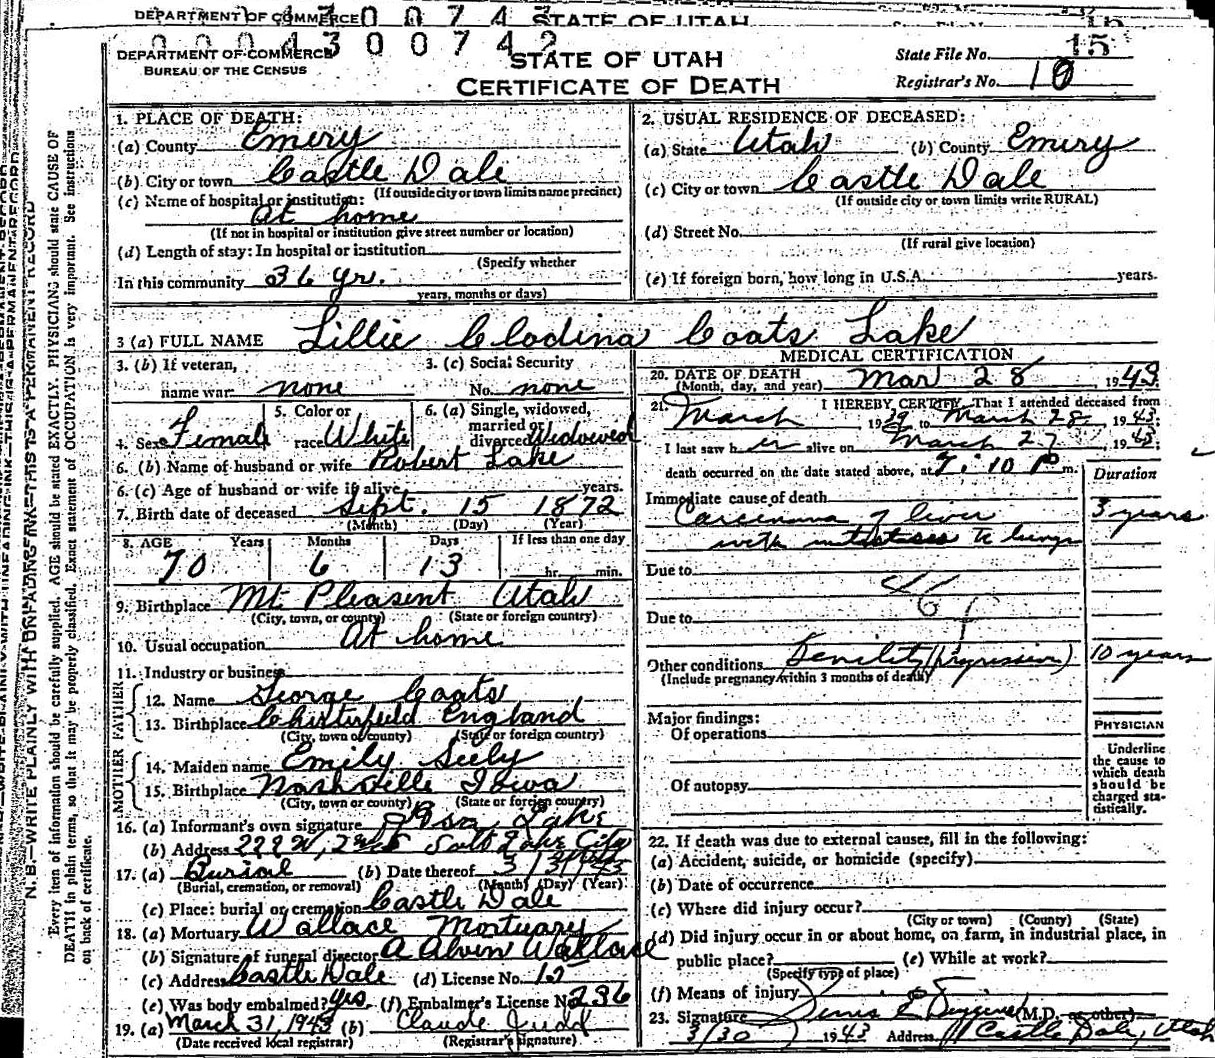 DEPARTMENT OF COMMERCE STATE OF UTAH
0 0 0 4 3 0 0 7 4 2
DEPARTMENT OF COMMERCE
BUREAU OF THE CENSUS
STATE OF UTAH
CERTIFICATE OF DEATH
State File No. 15
Registrar's No. 10
1. PLACE OF DEATH:
(a) County Emery
(b) City or town Castle Dale
(If outside city or town limits name precinct)
(c) Name of hospital or institution:
At home
(If not in hospital or institution give street number or location)
(d) Length of stay: In hospital or institution
(Specify whether
In this community 36 yr.
years, months or days)
2. USUAL RESIDENCE OF DECEASED:
(a) State Utah (b) County Emery
(c) City or town Castle Dale
(If outside city or town limits write RURAL)
(d) Street No.
(If rural give location)
(e) If foreign born, how long in U.S.A. years.
3 (a) FULL NAME Lillie Clodina Coats Lake
3. (b) If veteran,
name war none
3. (c) Social Security
No. none
4. Sex Female
5. Color or
race White
6. (a) Single, widowed,
married or
divorced Widowed
6. (b) Name of husband or wife Robert Lake
6. (c) Age of husband or wife if alive years.
7. Birth date of deceased Sept. 15 1872
(Month) (Day) (Year)
8. AGE Years Months Days If less than one day
70 6 13 hr. min.
9. Birthplace Mt Pleasent Utah
(City, town, or county) (State or foreign country)
10. Usual occupation At home
11. Industry or business
FATHER
12. Name George Coats
13. Birthplace Chisterfield England
(City, town or county) (State or foreign country)
MOTHER
14. Maiden name Emily Seely
15. Birthplace Nashville Iowa
(City, town or county) (State or foreign country)
16. (a) Informant's own signature Lake
(b) Address 222 Salt Lake City
17. (a) Burial (b) Date thereof 3/31/43
(Burial, cremation, or removal) (Month) (Day) (Year)
(c) Place: burial or cremation Castle Dale
18. (a) Mortuary Wallace Mortuary
(b) Signature of funeral director A Alvin Wallace
(c) Address Castle Dale (d) License No. 15
(e) Was body embalmed? Yes. (f) Embalmer's License No 236
19. (a) March 31, 1943 (b) Claude Judd
(Date received local registrar) (Registrar's signature)
MEDICAL CERTIFICATION
20. DATE OF DEATH
(Month, day, and year) Mar 28 1943
21. I HEREBY CERTIFY, That I attended deceased from
March 1939 to March 28 1943.
I last saw her alive on March 27 1943.
death occurred on the date stated above, at 7:10 P m.
Duration
Immediate cause of death
Carcinoma of liver 3 years
with metastases to lungs
Due to
46 f
Due to
Other conditions Senility (progressive) 10 years
(Include pregnancy within 3 months of death)
Major findings:
Of operations
Of autopsy
PHYSICIAN
Underline
the cause to
which death
should be
charged sta-
tistically.
22. If death was due to external causes, fill in the following:
(a) Accident, suicide, or homicide (specify)
(b) Date of occurrence
(c) Where did injury occur?
(City or town) (County) (State)
(d) Did injury occur in or about home, on farm, in industrial place, in
public place? (e) While at work?
(Specify type of place)
(f) Means of injury
23. Signature (M.D. or other)
3/30 1943 Address Castle Dale, Utah
N. B.—WRITE PLAINLY WITH UNFADING INK—THIS IS A PERMANENT RECORD
Every item of information should be carefully supplied. AGE should be stated EXACTLY. PHYSICIANS should state CAUSE OF
DEATH in plain terms, so that it may be properly classified. Exact statement of OCCUPATION is very important. See instructions
on back of certificate.